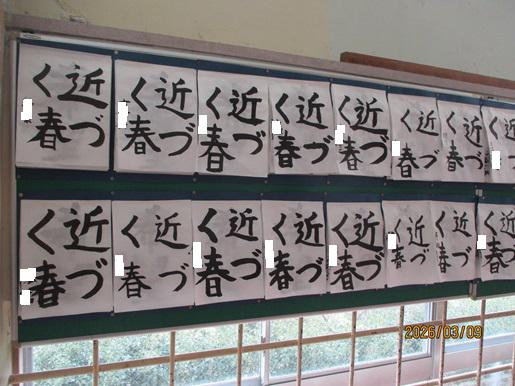 近づ
く春
近づ
く春
近づ
く春
近づ
く春
近づ
く春
近づ
く春
近づ
く春
近づ
く春
近づ
く春
近づ
く春
近づ
く春
近づ
く春
近づ
く春
近づ
く春
近づ
く春
近づ
く春
2026/03/09